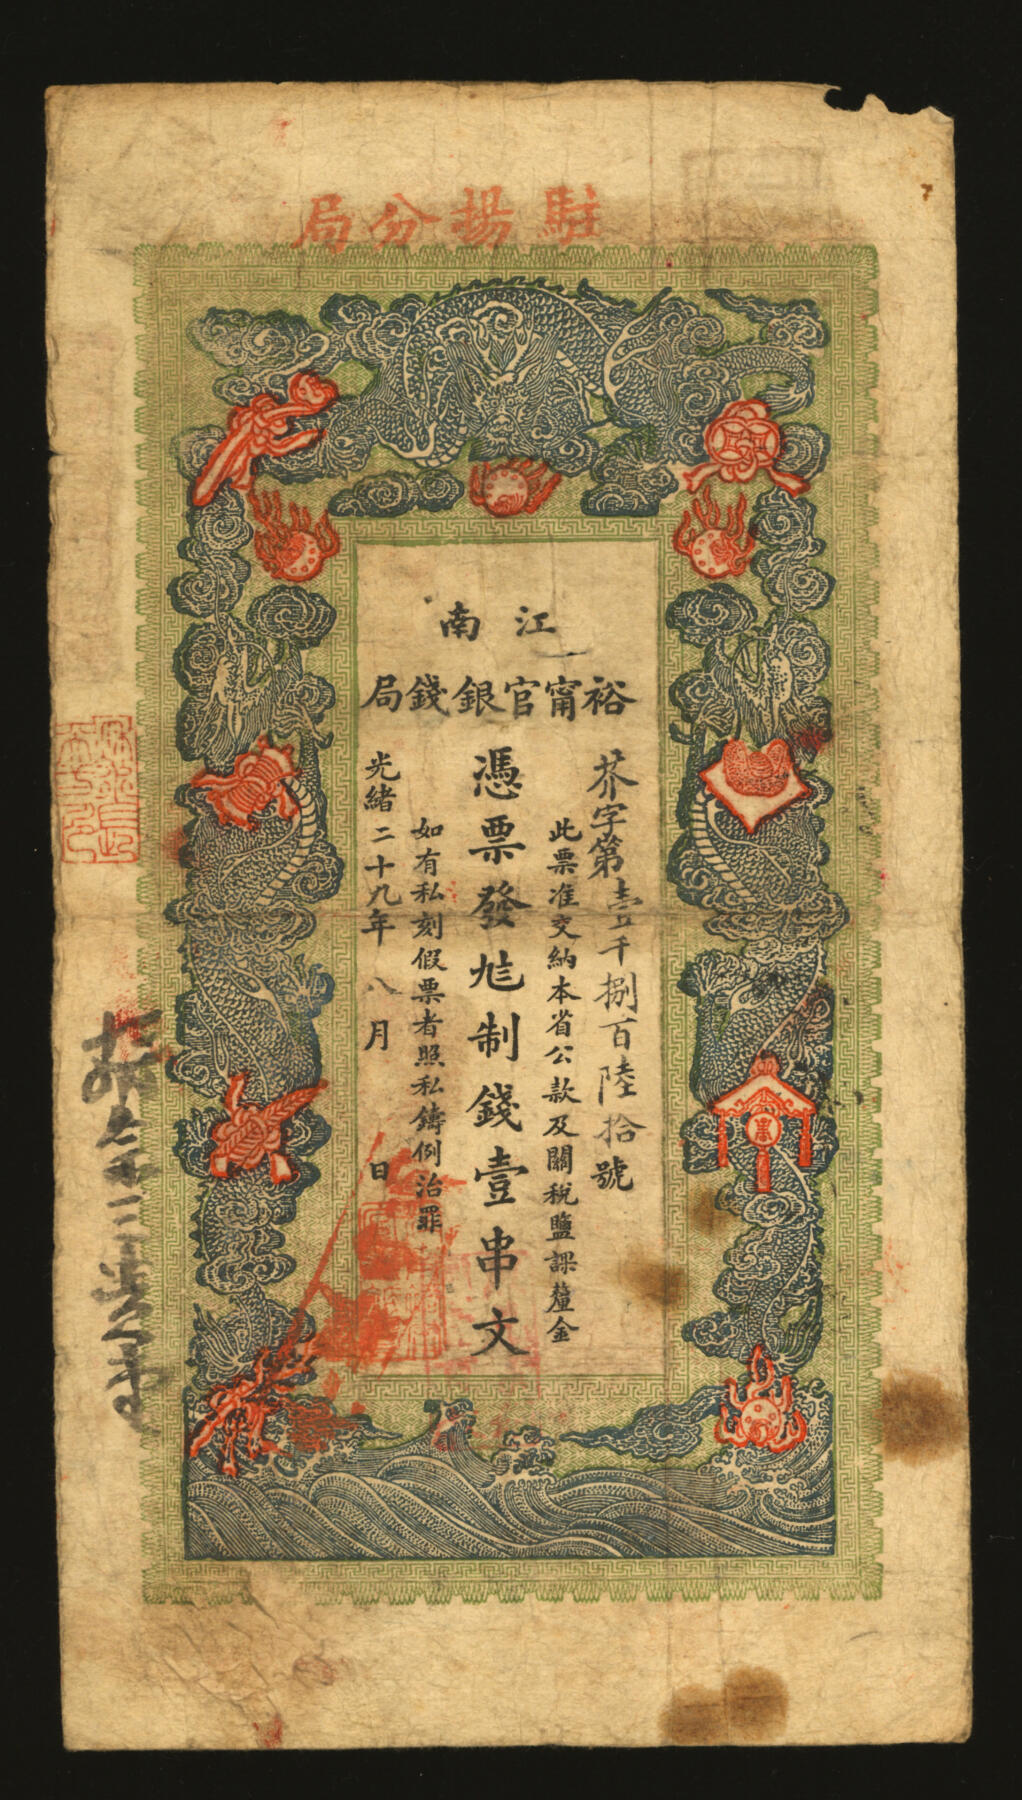 駐揚分局
江南
裕甯官銀錢局
芥字第壹千捌百陸拾號
此票准交納本省公款及關稅鹽課釐金
憑票發九制錢壹串文
如有私刻假票者照私鑄例治罪
光緒二十九年八月 日